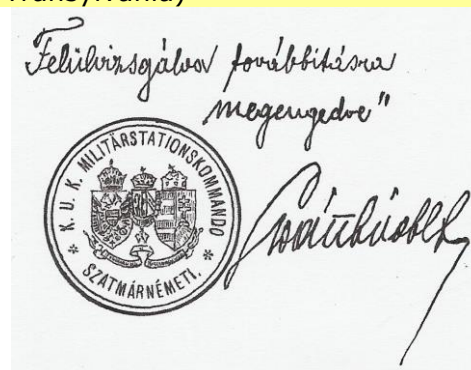 Transylvania)
Felülvizsgálva továbbitásra
megengedve"
* K. U. K. MILITÄRSTATIONSKOMMANDO *
SZATMÁRNÉMETI.